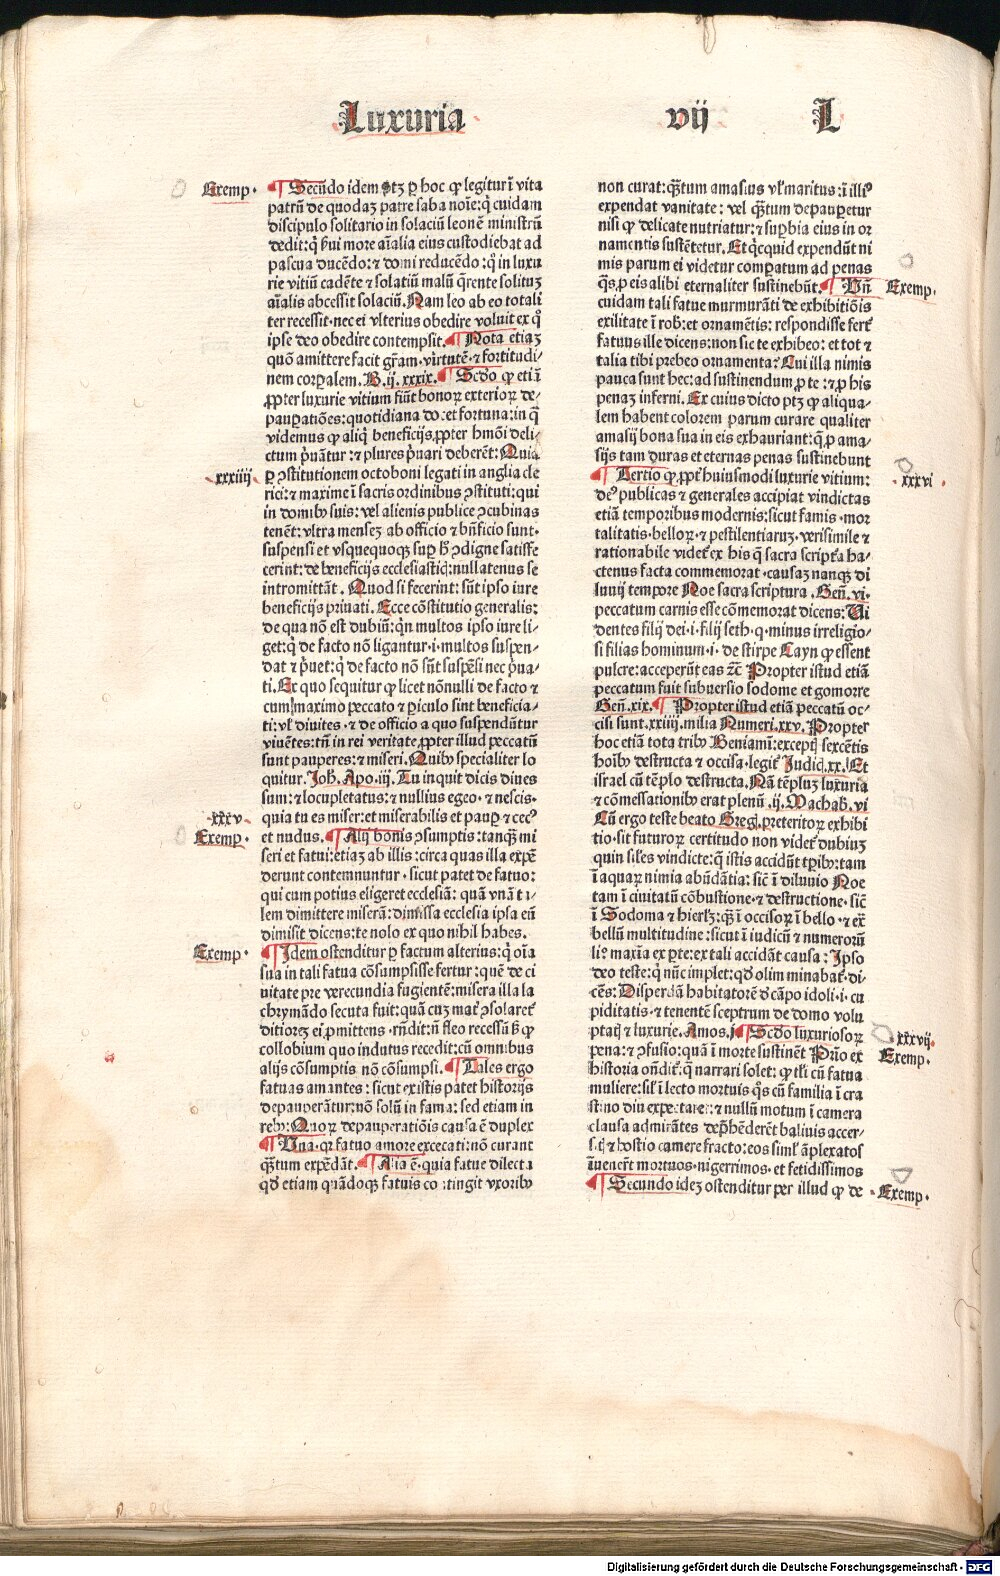 Luxuria vij L
Exemp.
¶ Secūdo idem ptꝫ ꝑ hoc ꝙ legitur ī vita
patrū de quodaꝫ patre saba noīe: q̇ cuidam
discipulo solitario in solaciū leonē ministrū
dedit: q̇ boui more aīalia eius custodiebat ad
pascua ducēdo: ⁊ domi reducēdo: q̇ in luxu
rie vitiū cadēte ⁊ solatium malū q̄rente solituꝫ
aīalis abcessit solaciū. Nam leo ab eo totali
ter recessit. nec ei vlterius obedire voluit ex qͦ
ipse deo obedire contempsit. ¶ Nota etiaꝫ
quō amittere facit gr̄am. virtutē. ⁊ fortitudi⸗
nem corꝑalem. B. ij. xxxix. ¶ Scdo ꝙ etiā
ꝓpter luxurie vitium fiūt bonoꝝ exterioꝝ de⸗
pauꝑatiōes: quotidiana docet fortuna: in q̄
videmus ꝙ aliq̇ beneficijs ꝓpter hm̄oi deli⸗
ctum p̄uātur: ⁊ plures p̄uari deberēt: Quia
xxxiiij
ꝑ ꝯstitutionem octoboni legati in anglia cle
rici: ⁊ maxime ī sacris ordinibus ꝯstituti: qui
in domibꝫ suis: vel alienis publice ꝯcubinas
tenēt: vltra menseꝫ ab officio ⁊ bn̄ficio sunt.
suspensi et vsquequoqꝫ suꝑ hꝫ ꝯdigne satisfe
cerint: de beneficijs ecclesiasticꝭ: nullatenus se
intromittāt. Quod si fecerint: sūt ipso iure
beneficijs priuati. Ecce cōstitutio generalis:
de qua nō est dubiū: qn̄ multos ipso iure li⸗
get: q̇ de facto nō ligantur. i. multos suspen⸗
dat ⁊ p̄uet: q̇ de facto nō sūt suspēsi nec p̄ua⸗
ti. Ex quo sequitur ꝙ licet nōnulli de facto ⁊
cum maximo peccato ⁊ ꝑiculo sint beneficia⸗
ti: vl̓ diuites. ⁊ de officio a quo suspendātur
viuētes: tn̄ in rei veritate ꝓpter illud peccatū
sunt pauperes: ⁊ miseri. Quibꝫ specialiter lo
quitur. Joh. Apo. iij. Tu inquit dicis diues
sum: ⁊ locupletatus: ⁊ nullius egeo. ⁊ nescis.
xxxv.
quia tu es miser: et miserabilis et pauꝑ ⁊ cecꝰ
Exemp.
et nudus. ¶ Alij bonis ꝯsumptis: tanqꝫ mi
seri et fatui: etiaꝫ ab illis: circa quas illa expē
derunt contemnuntur. sicut patet de fatuo:
qui cum potius eligeret ecclesiā: quā vnā ta
lem dimittere miserā: dimissa ecclesia ipsa eū
dimisit dicens: te nolo ex quo nihil habes.
Exemp.
¶ Idem ostenditur ꝑ factum alterius: q̇ oīa
sua in tali fatua cōsumpsisse fertur: quē de ci
uitate pre verecundia fugientē: misera illa la
chrymādo secuta fuit: quā cuꝫ matꝰ ꝯsolaret̄
ditioreꝫ ei ꝓmittens. rn̄dit: nō fleo recessū sꝫ ꝙ
collobium quo indutus recedit: cū omnibus
alijs cōsumptis nō cōsumpsi. ¶ Tales ergo
fatuas amantes: sicut ex istis patet historijs
depauperātur: nō solū in fama: sed etiam in
rebꝫ. Quoꝝ depauperatiōis causa ē duplex
¶ Una. qꝛ fatuo amore excecati: nō curant
quātum expēdāt. ¶ Alia ē. quia fatue dilecta
qd etiam quādoqꝫ fatuis cōtingit vxoribꝫ
non curāt: quātum amasius vl̓ maritus: ī illiꝰ
expendat vanitate: vel quātum depauperetur
nisi ꝙ delicate nutriatur: ⁊ suꝑbia eius in or
namentis sustētetur. Et qͥcquid expendūt ni
mis parum ei videtur comꝑatum ad penas
qͣs ꝓ eis alibi eternaliter sustinebūt. ¶ Uñ
Exemp.
cuidam tali fatue murmurāti de exhibitiōis
exilitate ī robꝭ et ornamētis: respondisse fert̄
fatuus ille dicens: non sic te exhibeo: et tot ⁊
talia tibi prebeo ornamenta? Cui illa nimis
pauca sunt hec: ad sustinendum ꝓ te: ⁊ ꝓ his
penaꝫ inferni. Ex cuius dicto ptꝫ ꝙ aliqua⸗
lem habent colorem parum curare qualiter
amasij bona sua in eis exhauriant: q̇ ꝓ ama⸗
sijs tam duras et eternas penas sustinebunt
xxxvi.
¶ Tertio ꝙ ꝓpt̄ huiusmodi luxurie vitium:
deꝰ publicas ⁊ generales accipiat vindictas
etiā temporibus modernis: sicut famis. mor
talitatis. belloꝝ. ⁊ pestilentiaruꝫ. verisimile ⁊
rationabile videt̄ ex his q̄ sacra scriptꝰa ha⸗
ctenus facta commemorat. causaꝫ nanqꝫ di
luuij tempore Noe sacra scriptura. Geñ. vi.
peccatum carnis esse cōmemorat dicens: Ui
dentes filij dei. i. filij seth. q. minus irreligio⸗
si filias hominum. i. de stirpe Cayn ꝙ essent
pulcre: acceperūt eas ⁊c̄ Propter istud etiā
peccatum fuit subuersio sodome et gomorre
Geñ. xix. ¶ Propter istud etiā peccatū oc⸗
cisi sunt. xxiiij. milia Numeri. xxv. Propter
hoc etiā tota tribꝫ Beniamī: exceptꝭ sexcētis
hoībꝫ destructa ⁊ occisa. legit̄ Judicꝭ. xx. Et
israel cū tēplo destructa. Nā tēpluꝫ luxuria
⁊ cōmessationibꝫ erat plenū. ij. Machab. vi
Cū ergo teste beato Greg. preteritoꝝ exhibi
tio. sit futuroꝝ certitudo non videt̄ dubiuꝫ
quin sil̓es vindicte: q̄ istis accidūt tꝑibꝫ: tam
ī aquaꝝ nimia abūdātia: sic̄ ī diluuio Noe
tam ī ciuitatū cōbustione. ⁊ destructione. sic̄
ī Sodoma ⁊ hierlꝫ: qͣꝫ ī occisoꝝ ī bello. ⁊ ex̄
bellū multitudine: sicut ī iudicū ⁊ numeroꝝ
liꝰ. maxīa ex ꝑte: ex tali accidāt causa: Ipso
deo teste: q̇ nūc implet: qd olim minabat̄. di⸗
cēs: Disperdā habitatorē d̓ cāpo idoli. i. cu
piditatis. ⁊ tenentē sceptrum de domo volu
ptatꝭ ⁊ luxurie. Amos. j. ¶ Scdo luxuriosoꝝ
xxxvij.
pena: ⁊ ꝯfusio: quā ī morte sustinēt Prīo ex
Exemp.
historia ondit̄: q̄ narrari solet: ꝙ tl̓i cū fatua
muliere: sil̓ ī lecto mortuis qͦs cū familia ī cra
stino diu expectaret: ⁊ nullū motum ī camera
clausa admirātes depͬhēderēt baliuis accer⸗
sitꝭ ⁊ hostio camere fracto: eos siml̓ āplexatos
īuenert̄ mortuos. nigerrimos. et fetidissimos
¶ Secundo ideꝫ ostenditur per illud ꝙ de
Exemp.
Digitalisierung gefördert durch die Deutsche Forschungsgemeinschaft - DFG